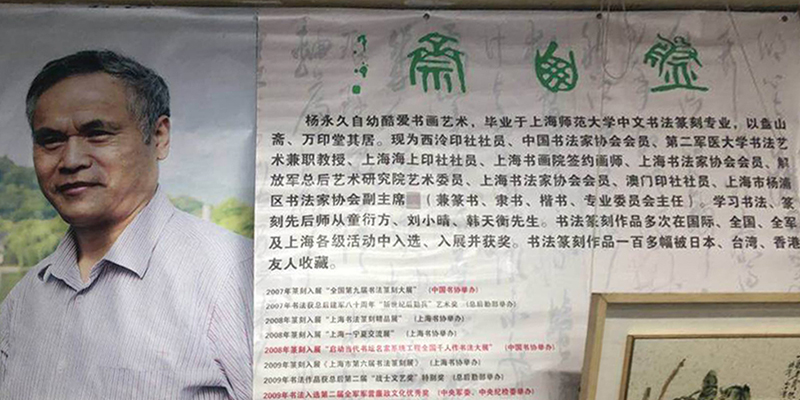 杨永久自幼酷爱书画艺术，毕业于上海师范大学中文书法篆刻专业，以盘山
斋、万印堂其居。现为西泠印社社员、中国书法家协会会员、第二军医大学书法艺
术兼职教授、上海海上印社社员、上海书画院签约画师、上海书法家协会会员、解
放军总后艺术研究院艺术委员、上海书法家协会会员、澳门印社社员、上海市杨浦
区书法家协会副主席（兼篆书、隶书、楷书、专业委员会主任）。学习书法、篆
刻先后师从童衍方、刘小晴、韩天衡先生。书法篆刻作品多次在国际、全国、全军
及上海各级活动中入选、入展并获奖。书法篆刻作品一百多幅被日本、台湾、香港
友人收藏。
2007年篆刻入展“全国第九届书法篆刻大展”（中国书协举办）
2007年书法获总后建军八十周年“新世纪后勤兵”艺术奖（总后勤部举办）
2008年篆刻入展“上海书法篆刻精品展”（上海书协举办）
2008年篆刻入展“上海—宁夏交流展”（上海书协举办）
2008年篆刻入展“启动当代书坛名家系统工程全国千人作书法大展”（中国书协举办）
2009年篆刻入展《上海市第六届书法篆刻展》（上海书协举办）
2009年书法作品获总后第二届“战士文艺奖”特别奖（总后勤部举办）
2009年入选第二届全军军营廉政文化优秀奖（中央军委、中央纪检委举办）